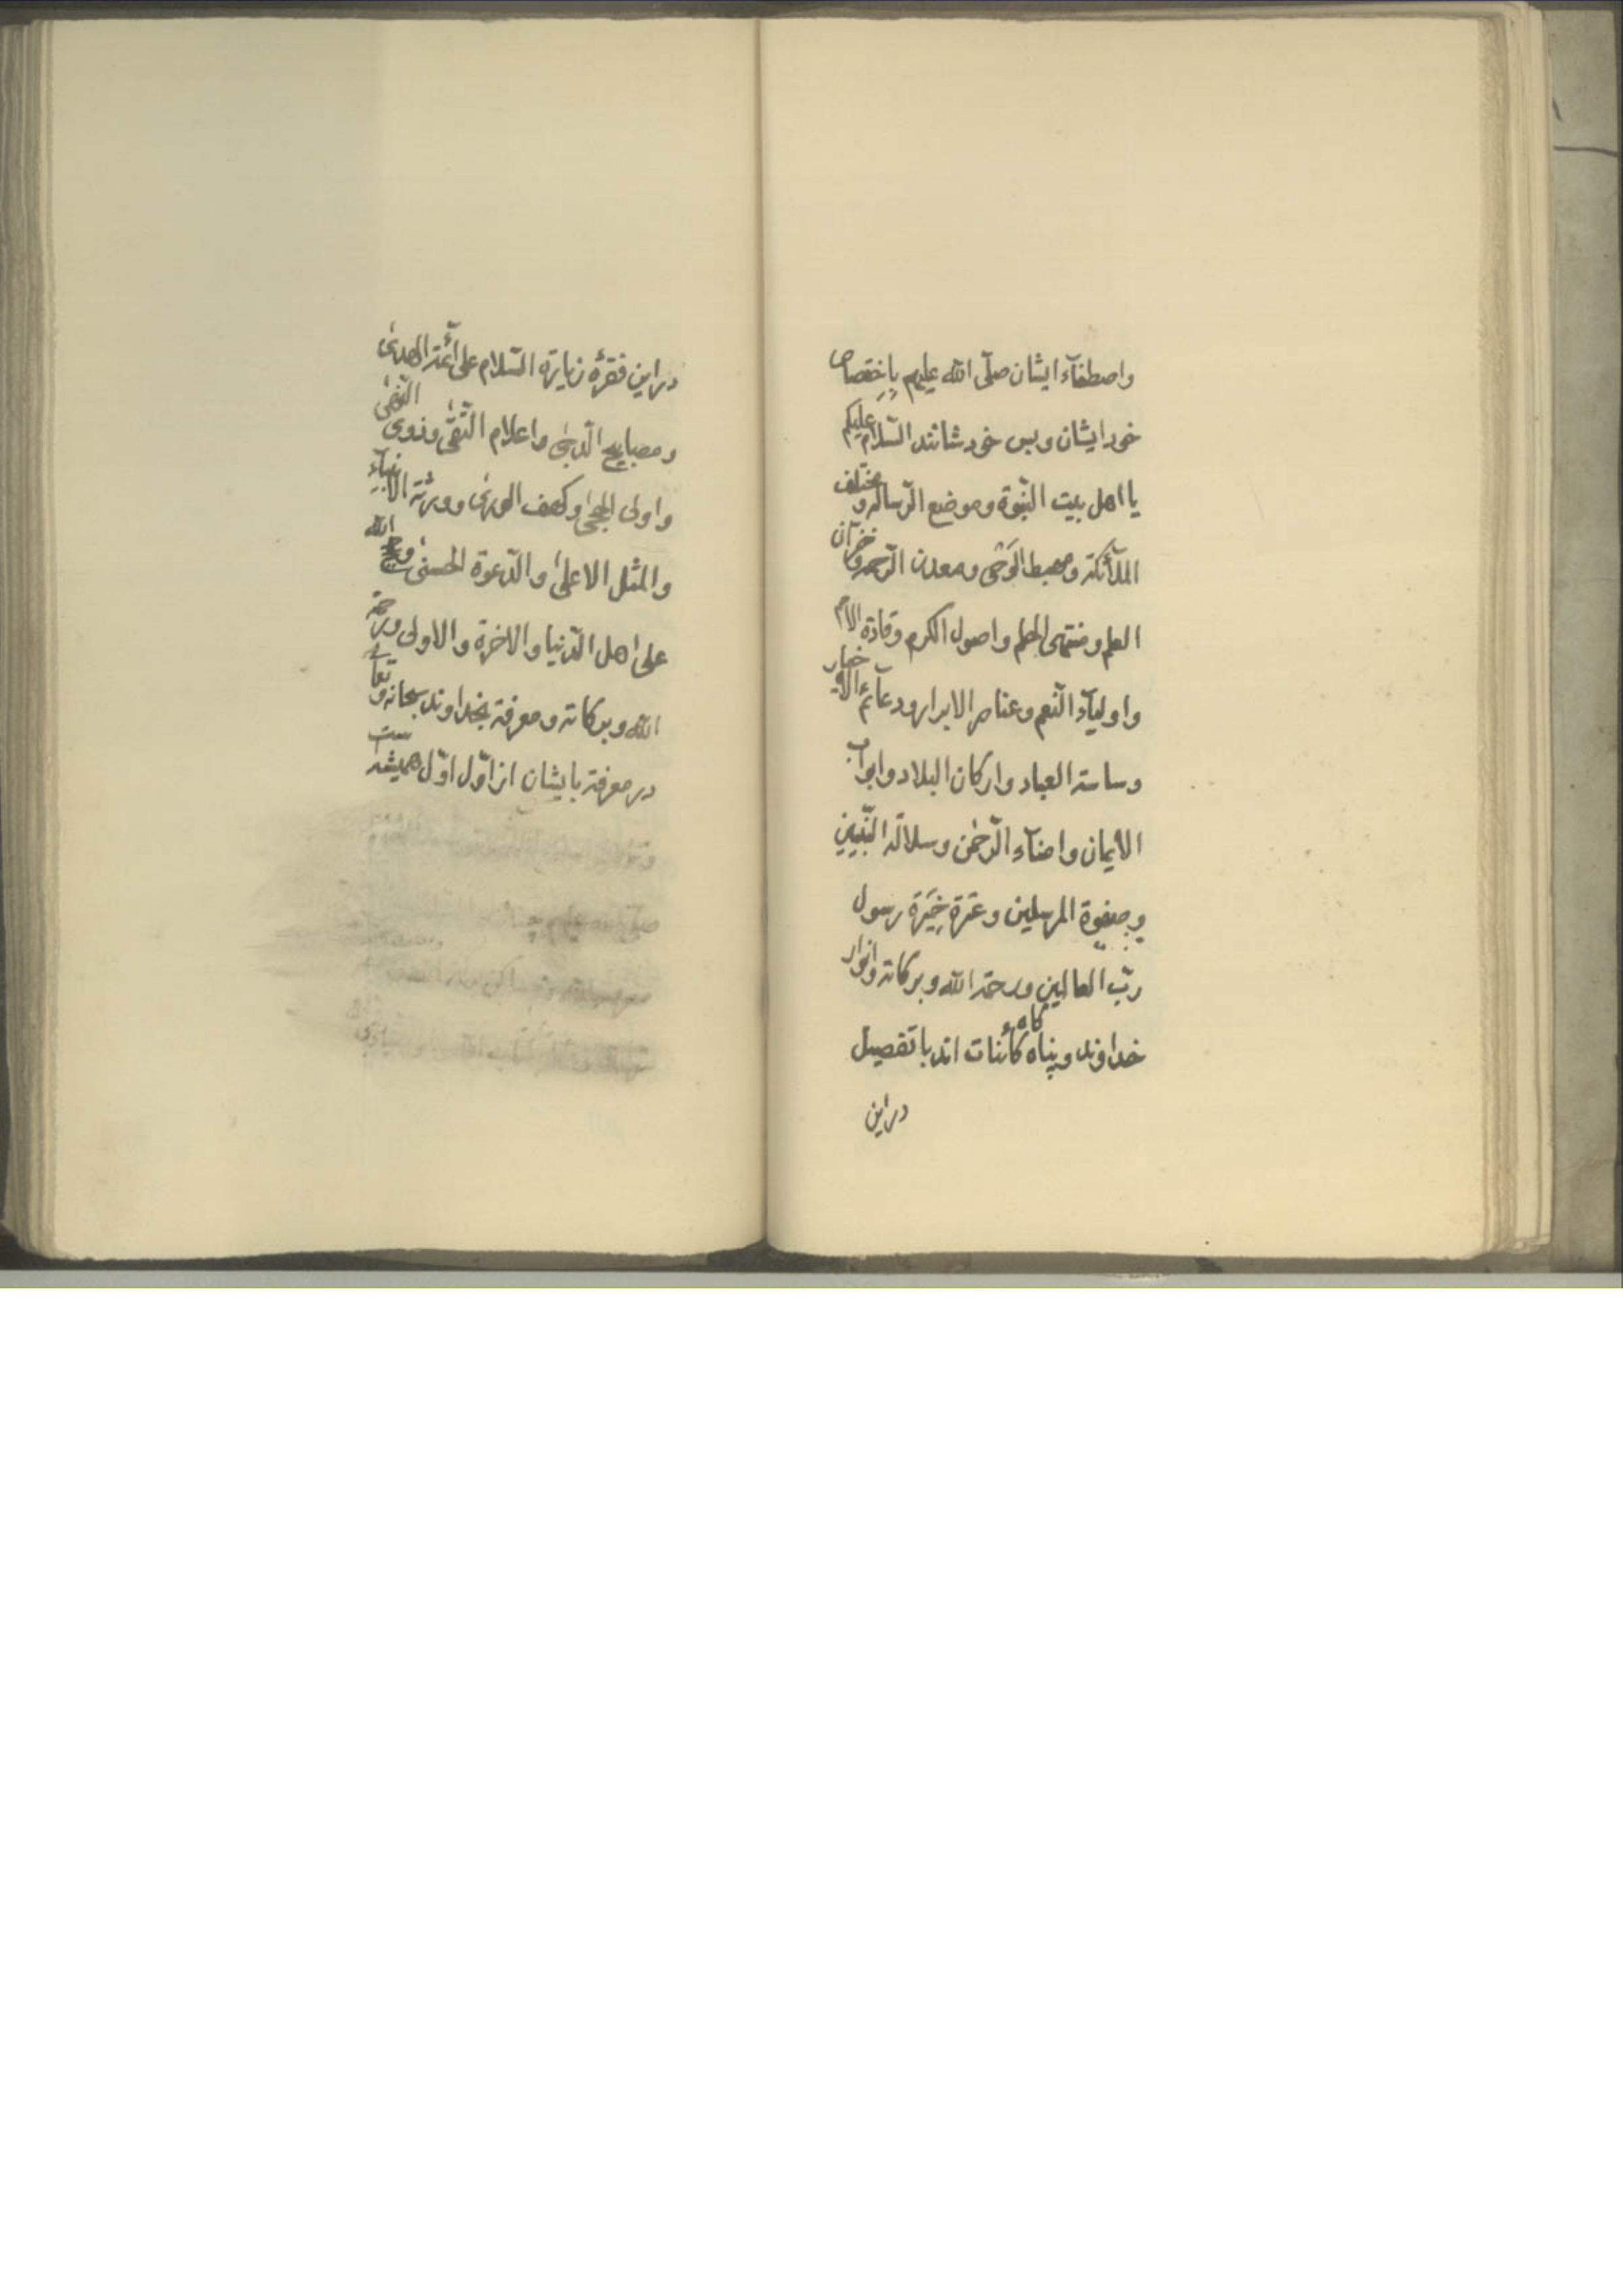 واصطفآء ایشان صلّی الله علیهم باختصاص
خود ایشان و بس خود شانند السّلام علیکم
یا اهل بیت النّبوّة وموضع الرّسالة و مختلف
الملآئکة ومهبط الوَحْی ومعدن الرّحمة وخزّان
العلم ومنتهی الحلم واصول الکرم وقادة الامم
واولیآء النّعم وعناصر الابرار ودعآئم الاخیار
وساسة العباد وارکان البلاد وابواب
الایمان وامنآء الرّحمٰن وسلالة النّبیّین
وصفوة المرسلین وعترة خِیَرَة رسول
ربّ العالمین ورحمة الله وبرکاته وانوار
خداوند وپناه کاه کائنات اند با تفصیل
در این
در این فقرهٔ زیارة السّلام علی آئمّة الهدیٰ
ومصابیح الدّجیٰ واعلام التّقیٰ وذوی النّهیٰ
واولی الحجیٰ وکهف الوریٰ وورثة الانبیآء
والمثل الاعلیٰ والدّعوة الحسنیٰ وحجج الله
علی اهل الدّنیا والاخرة والاولی ورحمة
الله وبرکاته ومعرفة بخداوند سبحانه و تعالی
در معرفة بایشان از اوّل اوّل همیشه است